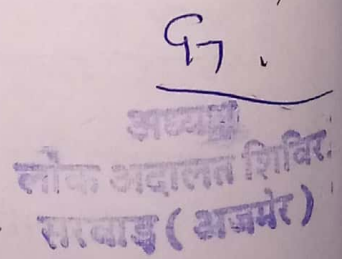 अध्यक्ष
लोक अदालत शिविर
सरवाड़ (अजमेर)